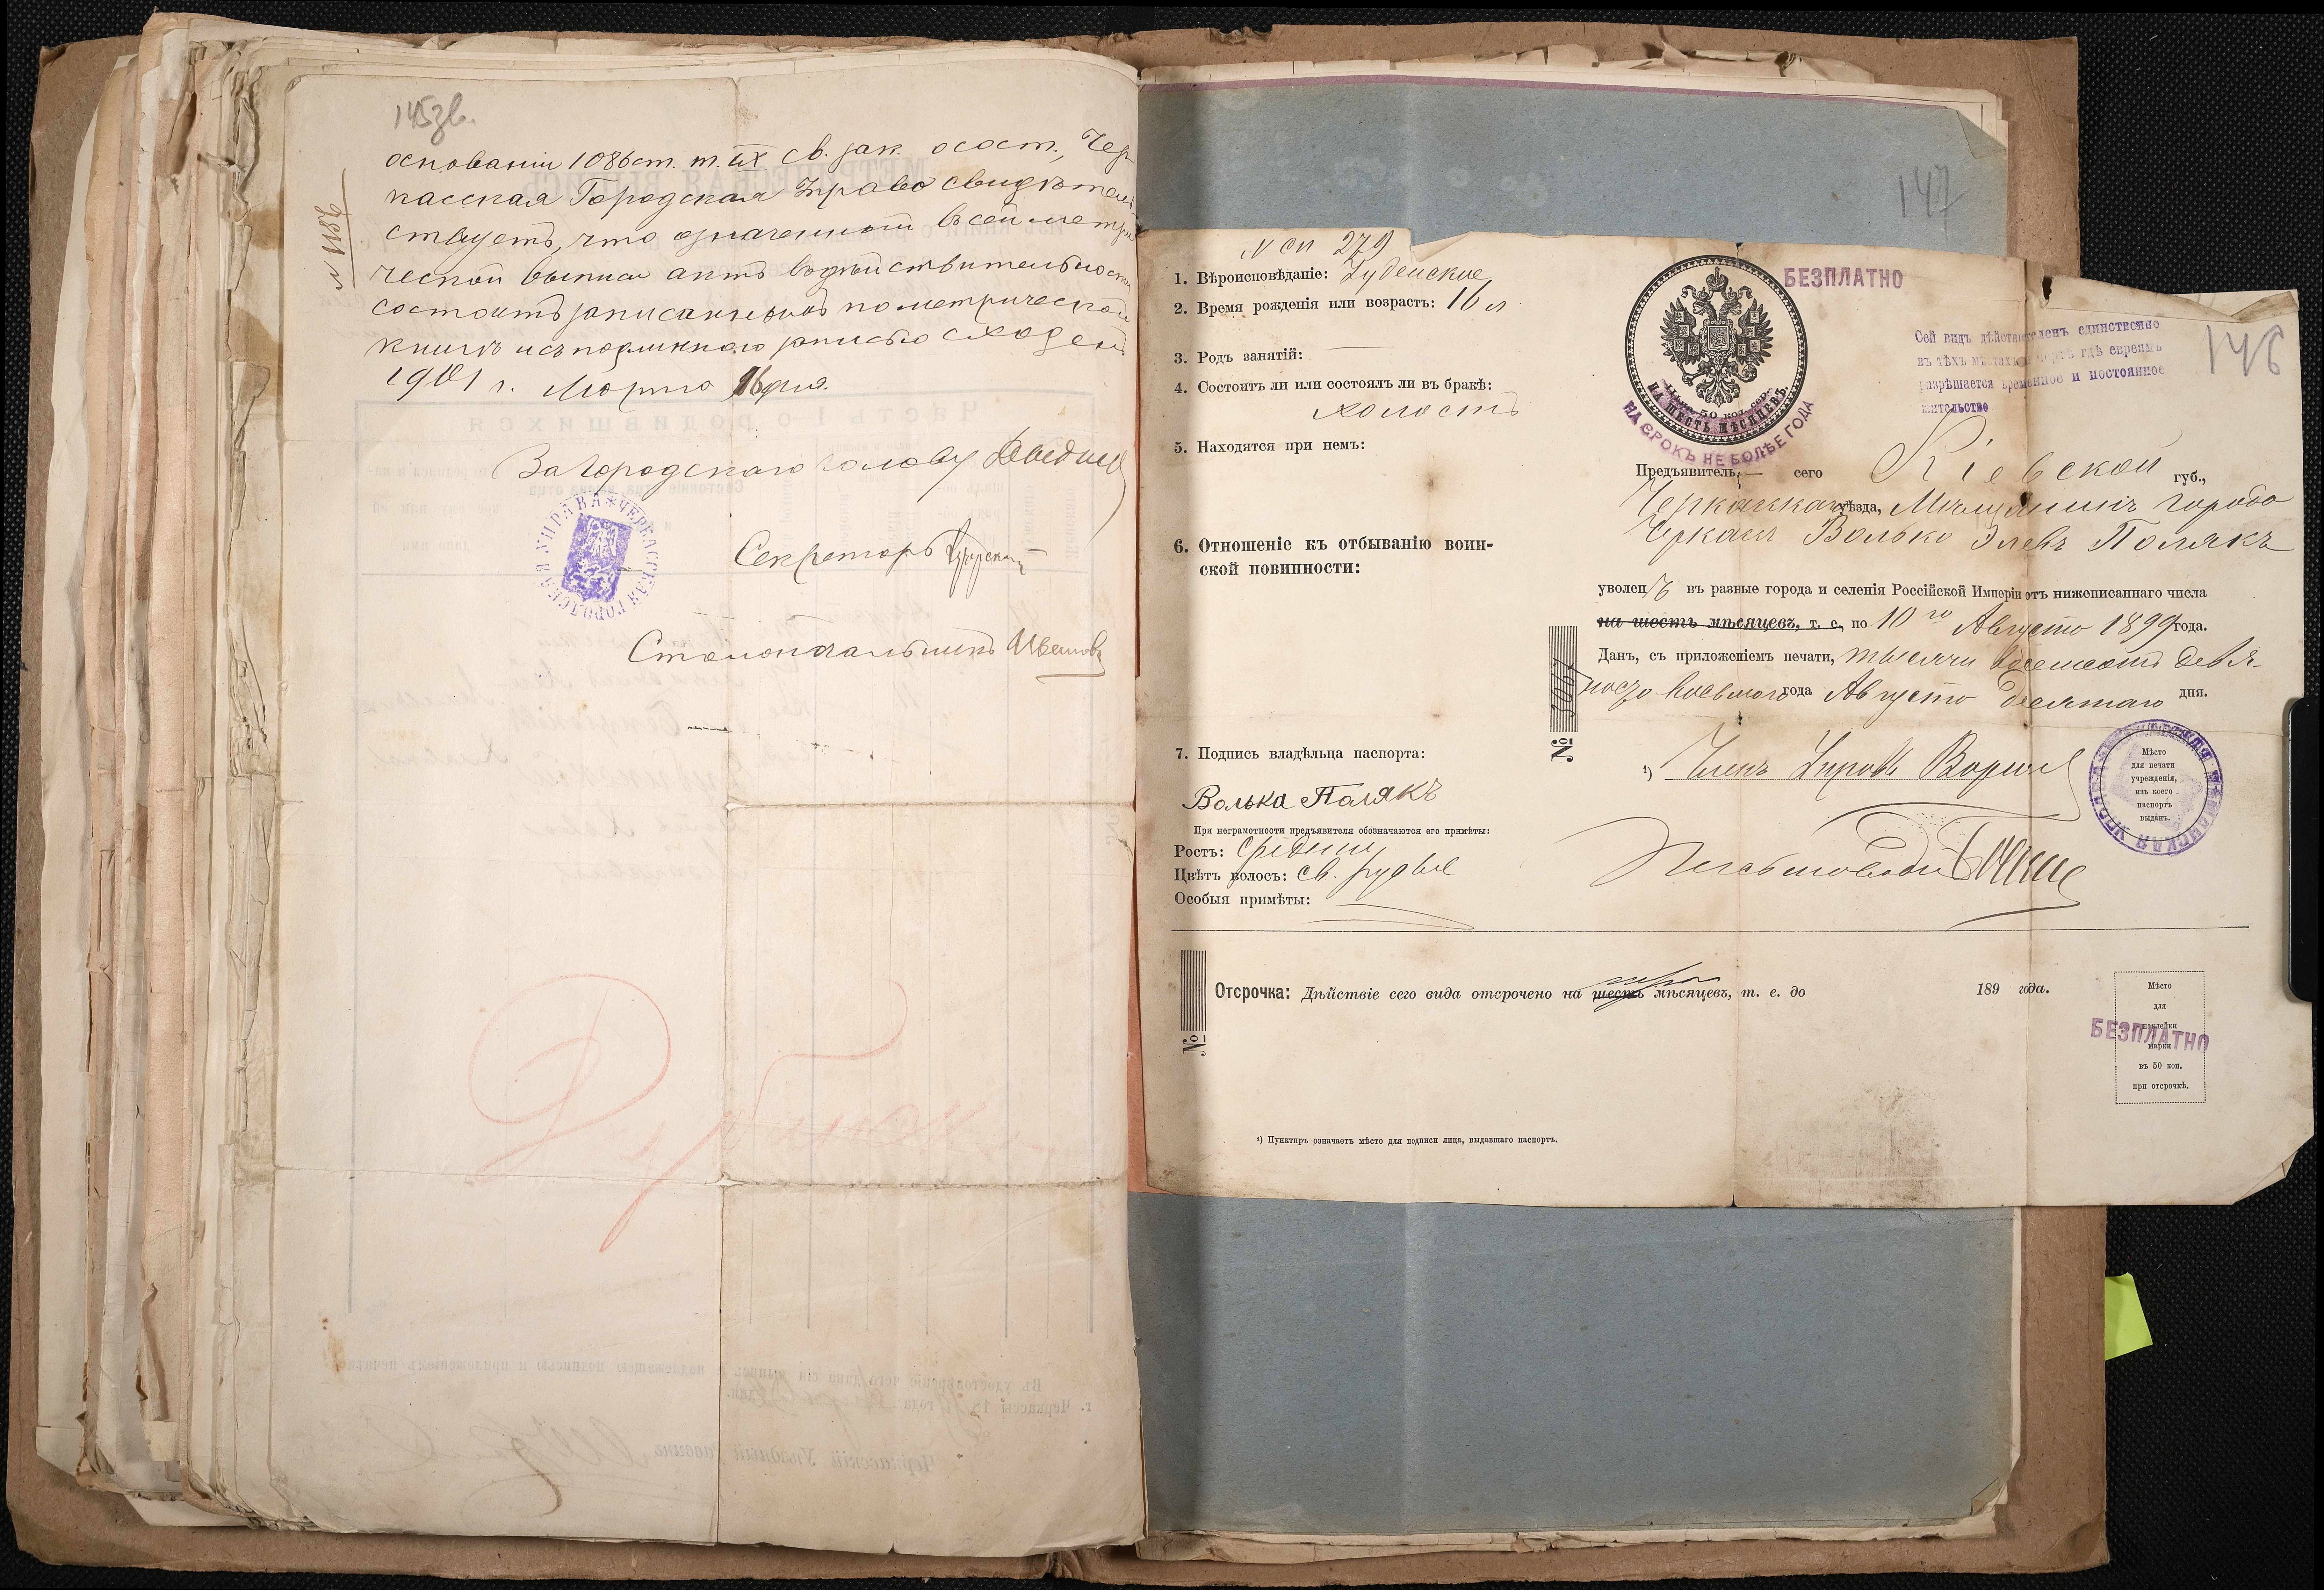 145зв.
№ 1182
основаніи 1086 ст. т. IX св. зак. о сост., Чер-
касская Городская Управа свидѣтель-
ствуетъ, что означенный въ сей метри-
ческой выписи актъ въ дѣйствительности
состоитъ записаннымъ по метрической
книгѣ и съ подлинною записью сходенъ
1901 г. Марта 16 дня.
За Городскаго Голову
Секретарь
Столоначальникъ
ЧЕРКАССКАЯ ГОРОДСКАЯ УПРАВА
147
146
№ сп 279
1. Вѣроисповѣданіе: Іудейское
2. Время рожденія или возрастъ: 16 л
3. Родъ занятій:
4. Состоитъ ли или состоялъ ли въ бракѣ:
холостъ
5. Находятся при немъ:
6. Отношеніе къ отбыванію воин-
ской повинности:
7. Подпись владѣльца паспорта:
Волька Полякъ
При неграмотности предъявителя обозначаются его примѣты:
Ростъ: средній
Цвѣтъ волосъ: св. русые
Особыя примѣты:
БЕЗПЛАТНО
Цѣна 50 коп. сер.
НА ШЕСТЬ МѢСЯЦЕВЪ.
НА СРОКЪ НЕ БОЛѢЕ ГОДА
Сей видъ дѣйствителенъ единственно
въ тѣхъ мѣстахъ гдѣ евреямъ
разрѣшается временное и постоянное
жительство
Предъявитель сего Кіевской губ.,
Черкасскаго уѣзда, Мѣщанинъ города
Черкасъ Волько Элевъ Полякъ
уволенъ въ разные города и селенія Россійской Имперіи отъ нижеписаннаго числа
на шесть мѣсяцевъ, т. е. по 10го Августа 1899 года.
Данъ, съ приложеніемъ печати, тысяча восемьсотъ девя-
носто восьмого года Августа десятаго дня.
№ 3067
¹) Членъ Управы
Мѣсто
для печати
учрежденія,
изъ коего
паспортъ
выданъ.
№
Отсрочка: Дѣйствіе сего вида отсрочено на шесть мѣсяцевъ, т. е. до 189 года.
Мѣсто
для
наклейки
марки
въ 50 коп.
при отсрочкѣ.
БЕЗПЛАТНО
¹) Пунктиръ означаетъ мѣсто для подписи лица, выдавшаго паспортъ.